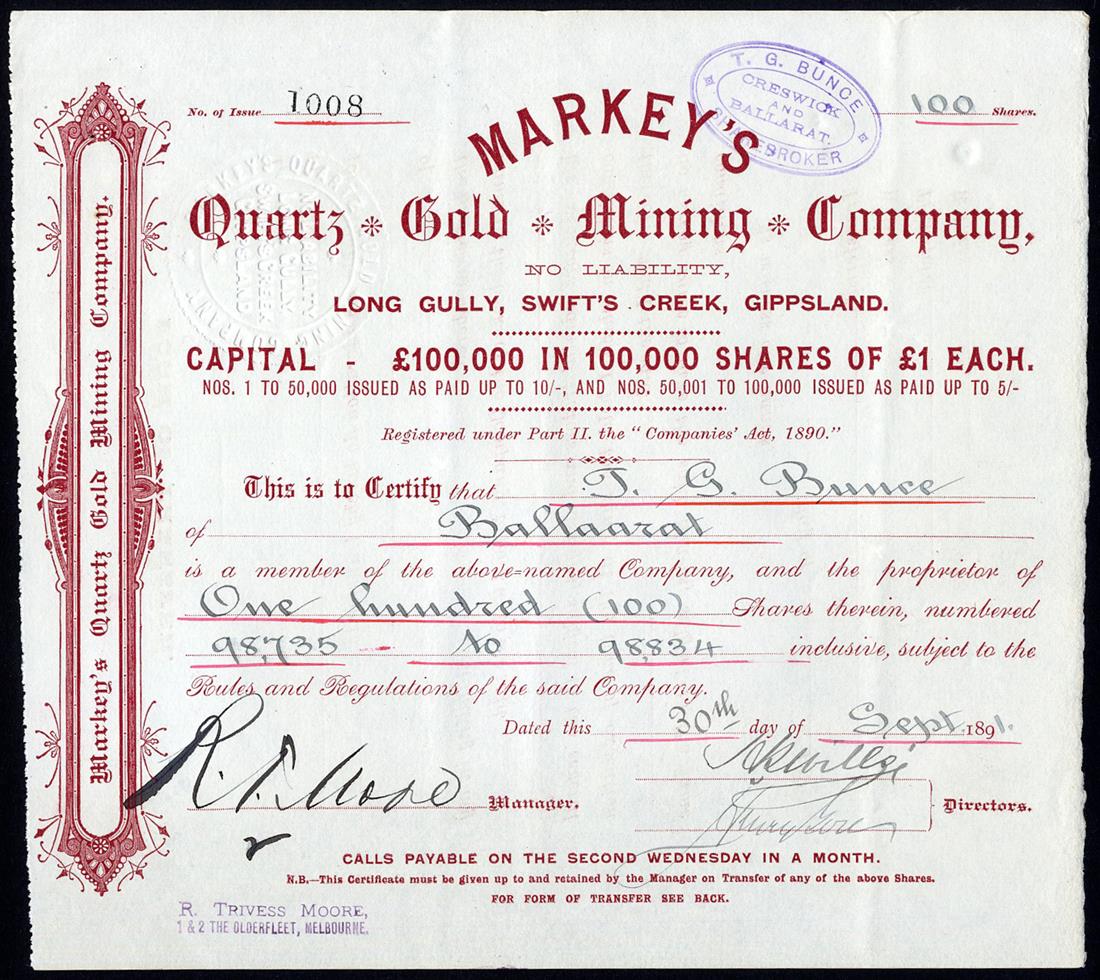 No. of Issue 1008
T. G. BUNCE
CRESWICK
AND
BALLARAT.
SHAREBROKER
100 Shares.
MARKEY'S
Quartz * Gold * Mining * Company,
NO LIABILITY,
LONG GULLY, SWIFT'S CREEK, GIPPSLAND.
CAPITAL - £100,000 IN 100,000 SHARES OF £1 EACH.
NOS. 1 TO 50,000 ISSUED AS PAID UP TO 10/-, AND NOS. 50,001 TO 100,000 ISSUED AS PAID UP TO 5/-
Registered under Part II. the "Companies' Act, 1890."
This is to Certify that T. G. Bunce
of Ballaarat
is a member of the above-named Company, and the proprietor of
One hundred (100) Shares therein, numbered
98,735 - to 98,834 inclusive, subject to the
Rules and Regulations of the said Company.
Dated this 30th day of Sept. 1891.
R. T. Moore Manager.
Directors.
CALLS PAYABLE ON THE SECOND WEDNESDAY IN A MONTH.
N.B.—This Certificate must be given up to and retained by the Manager on Transfer of any of the above Shares.
FOR FORM OF TRANSFER SEE BACK.
R. TRIVESS MOORE,
1 & 2 THE OLDERFLEET, MELBOURNE.
Markey's Quartz Gold Mining Company.